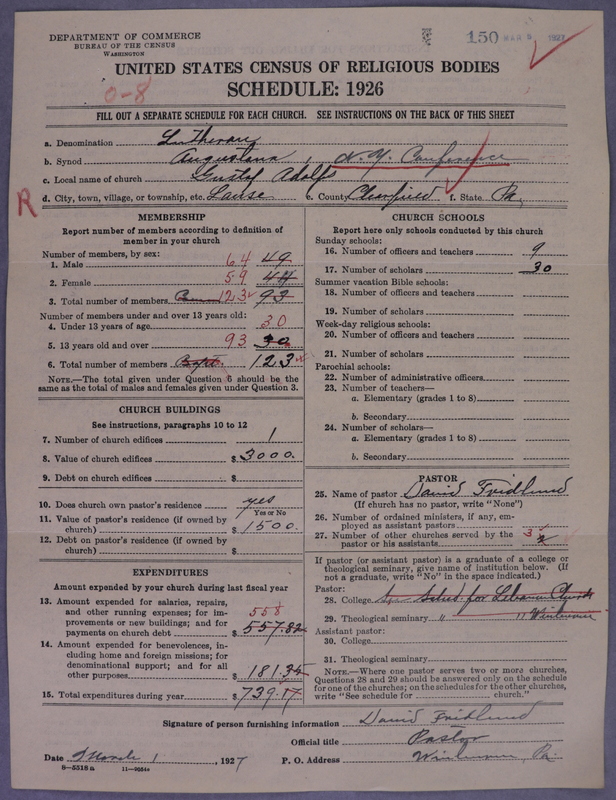 DEPARTMENT OF COMMERCE
BUREAU OF THE CENSUS
WASHINGTON
150 MAR 9 1927
UNITED STATES CENSUS OF RELIGIOUS BODIES
SCHEDULE: 1926
0-8
FILL OUT A SEPARATE SCHEDULE FOR EACH CHURCH. SEE INSTRUCTIONS ON THE BACK OF THIS SHEET
a. Denomination Lutheran
b. Synod Augustana, N.Y. Conference
c. Local name of church Gustaf Adolfs
R d. City, town, village, or township, etc. e. County Clearfield f. State Pa,
MEMBERSHIP
Report number of members according to definition of
member in your church
Number of members, by sex:
1. Male 64 49
2. Female 59 44
3. Total number of members 123 93
Number of members under and over 13 years old:
4. Under 13 years of age 30
5. 13 years old and over 93 30
6. Total number of members 123
NOTE.—The total given under Question 6 should be the
same as the total of males and females given under Question 3.
CHURCH BUILDINGS
See instructions, paragraphs 10 to 12
7. Number of church edifices 1
8. Value of church edifices $ 3000.
9. Debt on church edifices $
10. Does church own pastor's residence yes
Yes or No
11. Value of pastor's residence (if owned by
church) $ 1500.
12. Debt on pastor's residence (if owned by
church) $
EXPENDITURES
Amount expended by your church during last fiscal year
13. Amount expended for salaries, repairs,
and other running expenses; for im-
provements or new buildings; and for
payments on church debt 558 $ 557.82
14. Amount expended for benevolences, in-
cluding home and foreign missions; for
denominational support; and for all
other purposes $ 181.35
15. Total expenditures during year $ 739.17
CHURCH SCHOOLS
Report here only schools conducted by this church
Sunday schools:
16. Number of officers and teachers 9
17. Number of scholars 30
Summer vacation Bible schools:
18. Number of officers and teachers
19. Number of scholars
Week-day religious schools:
20. Number of officers and teachers
21. Number of scholars
Parochial schools:
22. Number of administrative officers
23. Number of teachers—
a. Elementary (grades 1 to 8)
b. Secondary
24. Number of scholars—
a. Elementary (grades 1 to 8)
b. Secondary
PASTOR
25. Name of pastor David Fridlund
(If church has no pastor, write "None")
26. Number of ordained ministers, if any, em-
ployed as assistant pastors
27. Number of other churches served by the
pastor or his assistants 3 2
If pastor (or assistant pastor) is a graduate of a college or
theological seminary, give name of institution below. (If
not a graduate, write "No" in the space indicated.)
Pastor:
28. College Sched. for Lebanon Church
29. Theological seminary " "
Assistant pastor:
30. College
31. Theological seminary
NOTE.—Where one pastor serves two or more churches,
Questions 28 and 29 should be answered only on the schedule
for one of the churches; on the schedules for the other churches,
write "See schedule for church."
Signature of person furnishing information David Fridlund
Official title Pastor
Date March 1, 1927 P. O. Address Pa.
8-5518a 11-9034